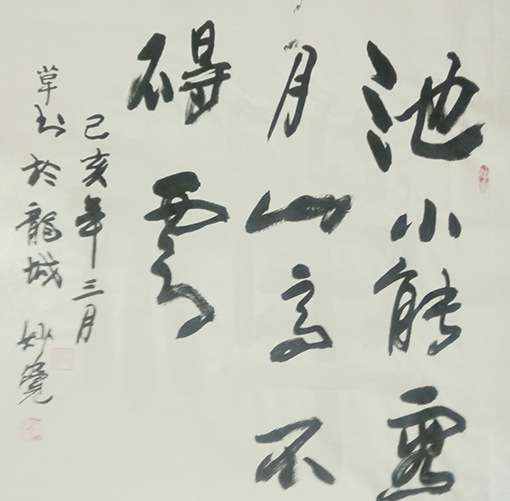 池小能容
月山高不
碍雲
己亥年三月
草书於龍城 妙覺